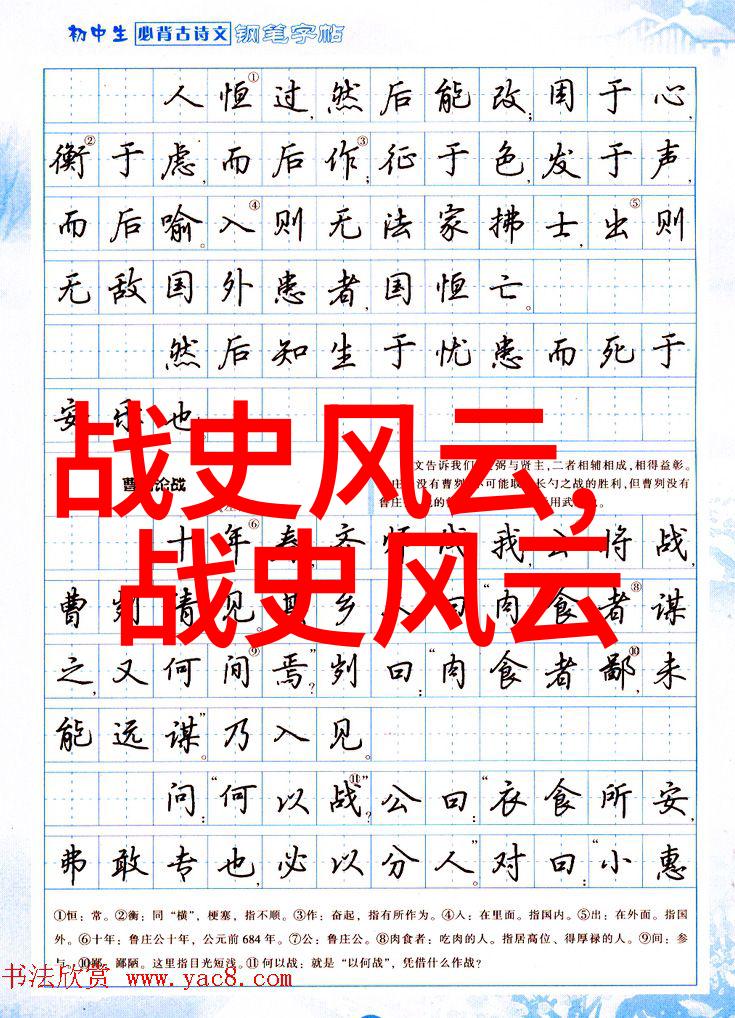 初中生 必背古诗文 钢笔字帖
人恒①过,然后能改;困于心,
衡②于虑,而后作③;征于色,发于声,
而后喻。入④则无法家拂士,出⑤则
无敌国外患者,国恒亡。
然后知生于忧患而死于
安乐也。
战史风云,
战史风云
文告诉我们 弼与贤主,二者相辅相成,相得益彰。
庄 没有曹刿 不可能取 长勺之战的胜利,但曹刿没有
鲁庄 的 用武
曹 论战
十年⑥春,齐师伐我,公将战,
曹刿请见。其乡人曰:“肉食者⑧谋
之,又何间⑨焉?”刿曰:“肉食者鄙⑩,未
能远谋。”乃入见。
问:“何以战⑪?”公曰:“衣食所安,
弗敢专也,必以分人。”对曰:“小惠
①恒:常。②衡:同“横”,梗塞,指不顺。③作:奋起,指有所作为。④入:在里面。指国内。⑤出:在外面。指国
外。⑥十年:鲁庄公十年,公元前684年。⑦公:鲁庄公。⑧肉食者:吃肉的人。指居高位、得厚禄的人。⑨间:参
与。⑩鄙:鄙陋。这里指目光短浅。⑪何以战:就是“以何战”,凭借什么作战?
书法欣赏 www.yac8.com